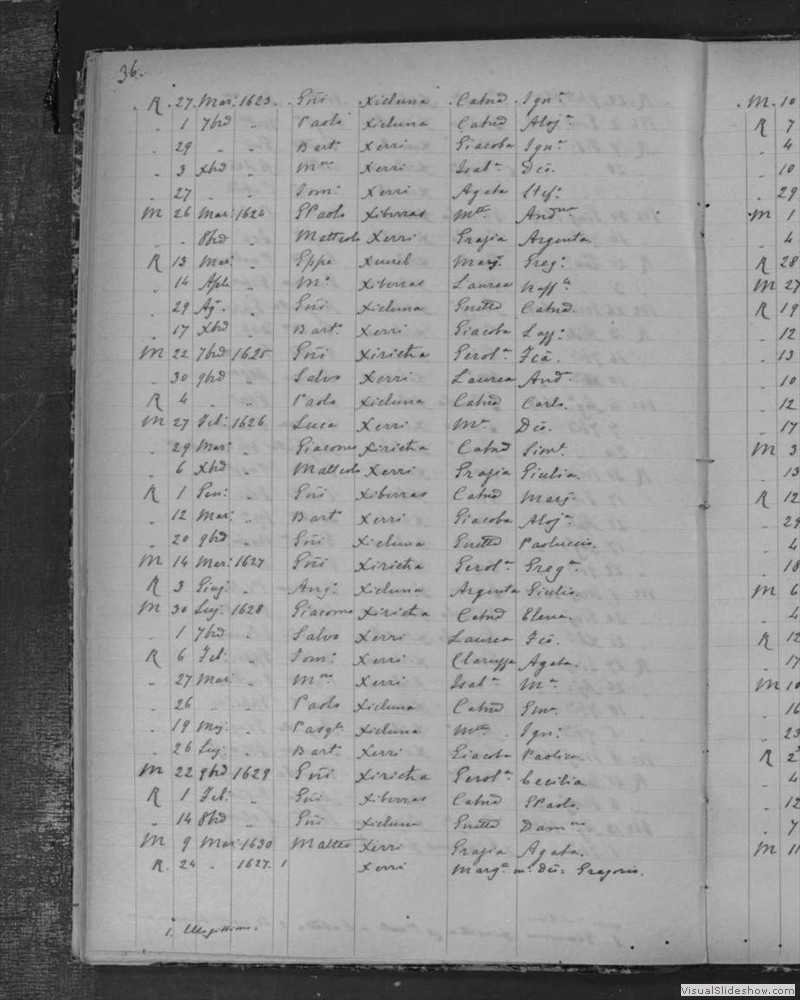 36.
R. 27 Mar: 1623. Gñi Xicluna Catnd Ign.a
. 1 7brd " Paolo Xicluna Catnd Aloj.a
. 29 " " Bart.o Xerri Giacoba Ign.a
. 3 Xbrd " M.co Xerri Isab.a Dco.
. 27 . " Tom.o Xerri Agata Stef.a
M 26 Mar: 1624 GPaolo Xiberras M.tta And.na
. . 8brd " Matteolo Xerri Grazia Argenta
R 13 Mar: " Gppe Xuereb Marg. Greg.o
. 14 Aple " M.o Xiberras Laurea Raff.la
. 29 Ag. " Gñi Xicluna Gnetta Catnd.
. 17 Xbrd " Bart.o Xerri Giacoba
M 22 7brd 1625 Gñi Xiricha Gerol.a Fca.
. 30 9brd " Salvo Xerri Laurea And.
R 4 . " Paolo Xicluna Catnd Carlo.
M 27 Feb: 1626 Luca Xerri M.a Dco.
. 29 Mar: " Giacomo Xiricha Catnd Sim.e
. 6 Xbrd " Matteolo Xerri Grazia Giulia.
R 1 Gen: " Gñi Xiberras Catnd Marg.
. 12 Mar: " Bart.o Xerri Giacoba Aloj.a
. 20 9brd " Gñi Xicluna Gnetta Paoluccio.
M 14 Mar: 1627 Gñi Xiricha Gerol.a Greg.a
R 3 Giug. " Ang.o Xicluna Argenta Giulio.
M 30 Lug. 1628 Giacomo Xiricha Catnd Elena.
. 1 7brd " Salvo Xerri Laurea Fco.
R 6 Feb: " Tom.o Xerri Clarizza Agata.
. 27 Mar: " M.co Xerri Isab.a M.a
. 26 . " Paolo Xicluna Catnd Gio.
. 19 Mag. " Pasq.le Xicluna M.tta Ign.o
. 26 Lug. " Bart.o Xerri Giacoba Paolica.
M 22 9brd 1629 Gñi Xiricha Gerol.a Cecilia
R 1 Feb: " Gñi Xiberras Catnd GPaolo.
. 14 8brd " Gñi Xicluna Gnetta Dam.no
M 9 Mar: 1630 Matteo Xerri Grazia Agata.
R. 24 " 1627. 1 Xerri Marg.a Gregorio.
1. Illegittimo.
. M. 10
R 7
. 4
. 10
. 29
M 1
. 4
R 28
M 27
R 19
. 12
. 13
. 10
. 12
. 17
M 3
. 13
R 12
. 29
. 4
. 18
M 6
. 4
R 12
. 17
M 10
. 16
. 23
R 2
. 4
. 12
. 7
M 11
VisualSlideshow.com